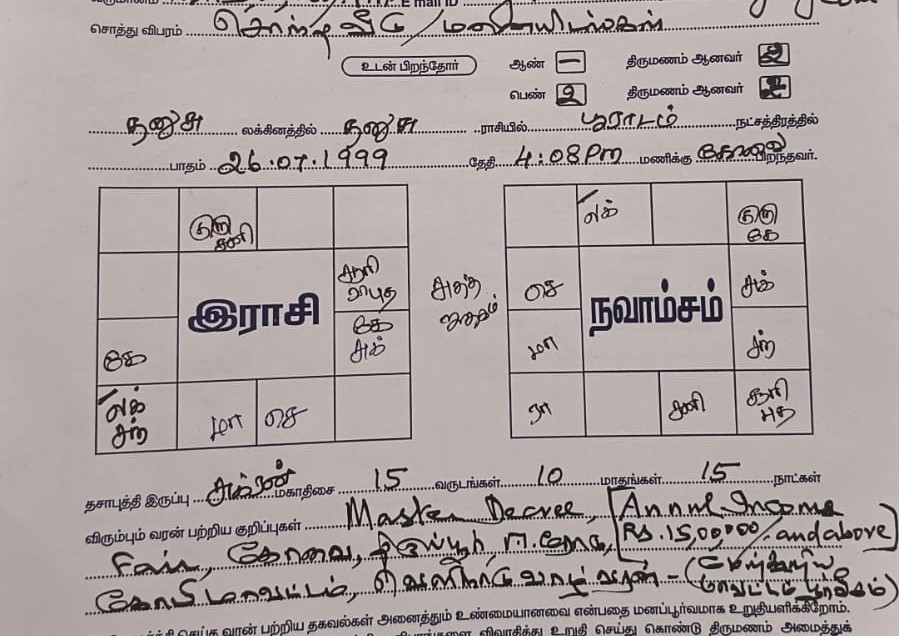 E mail ID
சொத்து விபரம் சொந்த வீடு /
உடன் பிறந்தோர் ஆண் — திருமணம் ஆனவர்
பெண் 2 திருமணம் ஆனவர்
தனுசு லக்கினத்தில் தனுசு ராசியில் பூராடம் நட்சத்திரத்தில்
பாதம் 26.07.1999 தேதி 4:08 Pm மணிக்கு கோவை பிறந்தவர்.
குரு
சனி
சூரி
புத
கே
கே
சுக்
லக்
சந்
மா
செ
இராசி
லக்
குரு
கே
செ
சுக்
மா
சந்
ரா
சனி
சூரி
புத
நவாம்சம்
தசாபுத்தி இருப்பு சுக்ரன் மகாதிசை 15 வருடங்கள் 10 மாதங்கள் 15 நாட்கள்
விரும்பும் வரன் பற்றிய குறிப்புகள் Master Decree, [Annul. Income
Fair, கோவை, திருப்பூர், Rs. 15,00,000/. and above]
வரன் -
செய்த வரன் பற்றிய தகவல்கள் அனைத்தும் உண்மையானவை என்பதை மனப்பூர்வமாக உறுதியளிக்கிறோம்.
விசாரித்து உறுதி செய்து கொண்டு திருமணம் அமைத்துக்